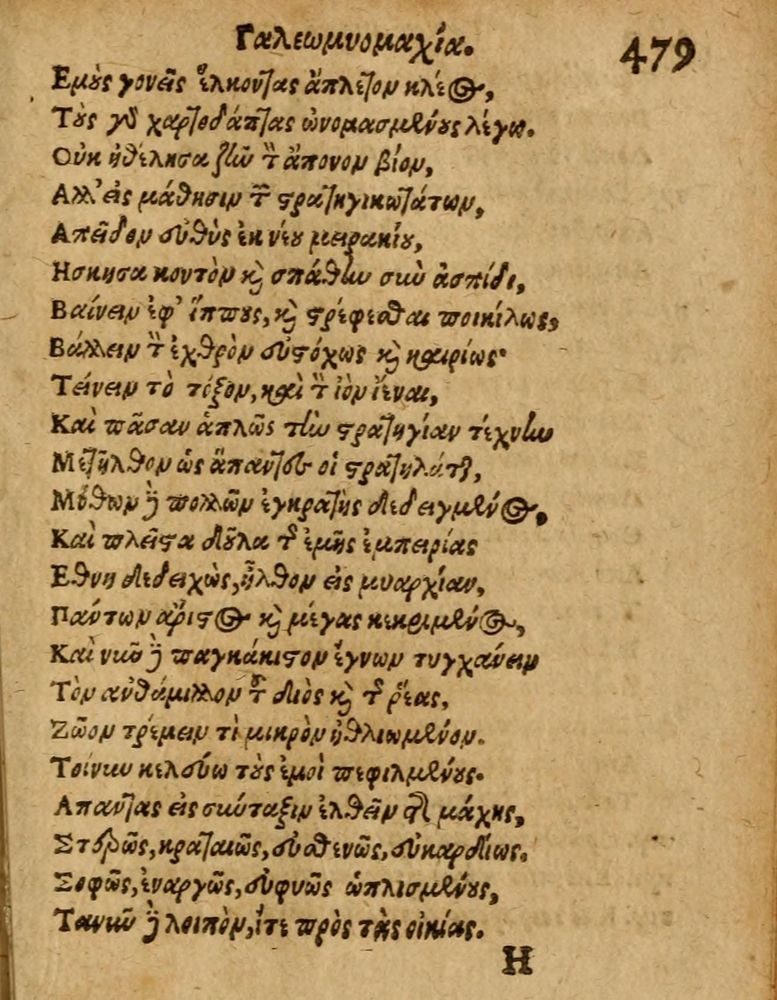 Γαλεωμυομαχία. 479
Εμοὺς γονεῖς ἕλκοντας ἄπλετον κλέος,
Τοὺς γὸ χαρτοδάπτας ὠνομασμένους λέγω.
Οὐκ ἠθέλησα ζῆν τὸν ἄπονον βίον,
Αλλ' εἰς μάθησιν τῶν στρατηγικωτάτων,
Απεῖδον εὐθὺς ἐκ νέου μειρακίου,
Ησκησα κοντὸν καὶ σπάθην σὺν ἀσπίδι,
Βαίνειν ἐφ' ἵππους, καὶ στρέφεσθαι ποικίλως,
Βάλλειν τὸν ἐχθρὸν εὐστόχως καὶ καιρίως·
Τείνειν τὸ τόξον, καὶ τὸν ἰὸν ἱέναι,
Καὶ πᾶσαν ἁπλῶς τὴν στρατηγίαν τέχνην
Μετῆλθον ὡς ἅπαντες οἱ στρατηλάται,
Μόθων δὲ πολλῶν ἐγκρατὴς δεδειγμένος,
Καὶ πλεῖστα δοῦλα τῆς ἐμῆς ἐμπειρίας
Εθνη δεδειχὼς, ἦλθον εἰς μυαρχίαν,
Πάντων ἄριστος καὶ μέγας κεκριμένος,
Καὶ νῦν δὲ παγκάκιστον ἔγνων τυγχάνειν
Τὸν ἀνθάμιλλον τοῦ διὸς καὶ τῆς ῥέας,
Ζῶον τρέμειν τὶ μικρὸν ἠθλιωμένον.
Τοίνυν κελεύω τοὺς ἐμοὶ πεφιλμένους.
Απαντας εἰς σύνταξιν ἐλθεῖν τῆς μάχης,
Στεῤῥῶς, κραταιῶς, εὐσθενῶς, εὐκαρδίως.
Σοφῶς, ἐναργῶς, εὐφυῶς ὡπλισμένους,
Τανῦν δὲ λοιπὸν, ἴτε πρὸς τὰς οἰκίας.
Η